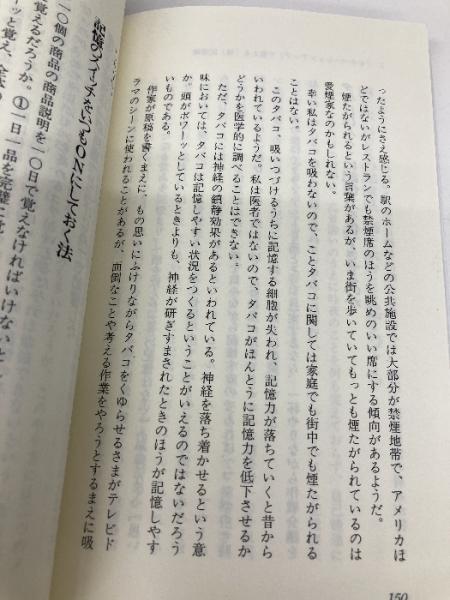 ったようにさえ感じる。駅のホームなどの公共施設では大部分が禁煙地帯で、アメリカほ
どではないがレストランでも禁煙席のほうを眺めのいい席にする傾向があるようだ。
煙たがられるという言葉があるが、いま街を歩いていてもっとも煙たがられているのは
愛煙家なのかもしれない。
幸い私はタバコを吸わないので、ことタバコに関しては家庭でも街中でも煙たがられる
ことはない。
このタバコ、吸いつづけるうちに記憶する細胞が失われ、記憶力が落ちていくと昔から
いわれているようだ。私は医者ではないので、タバコがほんとうに記憶力を低下させるか
どうかを医学的に調べることはできない。
ただ、タバコには神経の鎮静効果があるといわれている。神経を落ち着かせるという意
味においては、タバコは記憶しやすい状況をつくるということがいえるのではないだろう
か。頭がボワーッとしているときよりも、神経が研ぎすまされたときのほうが記憶しやす
いものである。
作家が原稿を書くまえに、もの思いにふけりながらタバコをくゆらせるさまがテレビド
ラマのシーンに使われることがあるが、面倒なことや考える作業をやろうとするまえに吸
150
記憶のスイッチをいつもONにしておく法
一〇個の商品の商品説明を一〇日で覚えなければいけないと
覚えるだろうか。①一日一品を完璧に覚
ーッと覚え、全体の